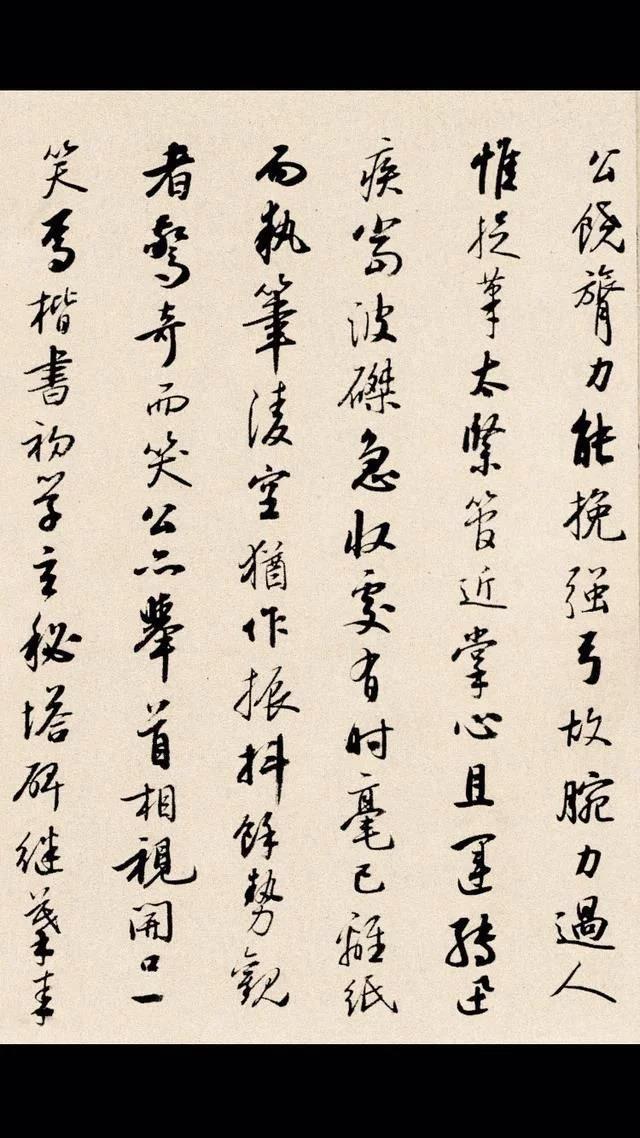 公饒膂力能挽強弓故腕力過人
惟捉筆太緊管近掌心且運轉迅
疾當波磔急收處有時毫已離紙
而執筆淩空猶作振抖餘勢觀
者驚奇而笑公亦舉首相視開口一
笑焉楷書初學玄秘塔碑繼摹李